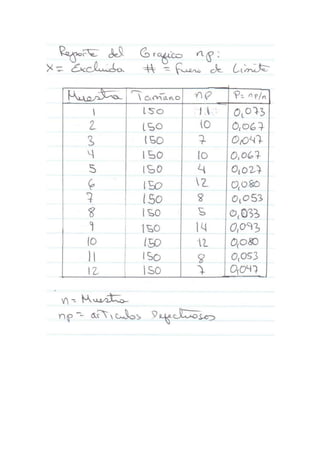 Reporte del Grafico np:
X = Excluida # = Fuera de Limite
Muestra Tamano np P = np/n
1 150 11 0,073
2 150 10 0,067
3 150 7 0,047
4 150 10 0,067
5 150 4 0,027
6 150 12 0,080
7 150 8 0,053
8 150 5 0,033
9 150 14 0,093
10 150 12 0,080
11 150 8 0,053
12 150 7 0,047
n = Muestra
np = articulos Defectuosos